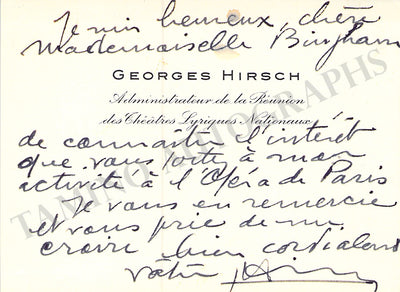 Je suis heureux, chère
Mademoiselle Bingham
GEORGES HIRSCH
Administrateur de la Réunion
des Théâtres Lyriques Nationaux
de connaître l'intérêt
que vous portez à mon
activité à l'Opéra de Paris
Je vous en remercie
et vous prie de me
croire bien cordialement
vôtre
TAMINO AUTOGRAPHS